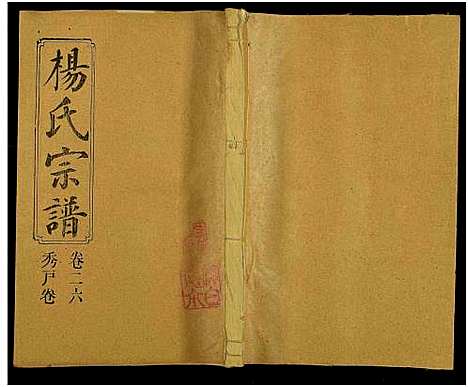 楊氏宗譜
卷二六
秀戶卷